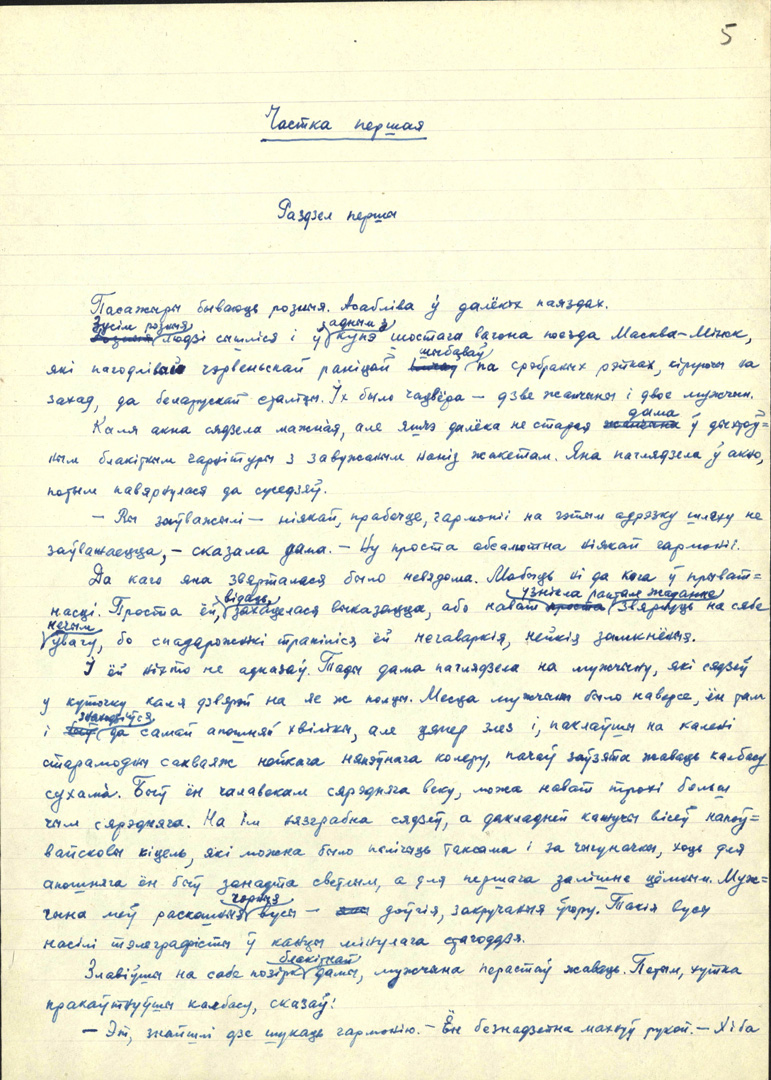 5
Частка першая
Раздзел першы
Пасажыры бываюць розныя. Асабліва ў далёкіх паяздах.
Зусім розныя людзі сышліся і ў адным з купэ шостага вагона поезда Масква–Мінск,
які пагодлівай чэрвеньскай раніцай шыбаваў па срэбраных рэйках, кіруючы на
захад, да беларускай сталіцы. Іх было чацвёра — дзве жанчыны і двое мужчын.
Каля акна сядзела мажная, але яшчэ далёка не старая жанчына дама ў
ным блакітным гарнітуры з завужаным ніжэй жакетам. Яна паглядзела ў акно,
потым павярнулася да суседзяў.
— Вы заўважылі — ніякай, прабачце, гармоніі на гэтым адрэзку шляху не
заўважаецца, — сказала дама. — Ну проста абсалютна ніякай гармоніі.
Да каго яна звярталася было невядома. Мабыць ні да кога ў прыват=
насці. Проста ёй, відаць, захацелася выказацца, або нават проста узнікла раптам жаданне звярнуць на сябе
нечым увагу, бо спадарожнікі трапіліся ёй негаваркія, нейкія замкнёныя.
І ёй ніхто не адказаў. Тады дама паглядзела на мужчыну, які сядзеў
у куточку каля дзвярэй на яе ж полцы. Месца мужчыны было наверсе, ён там
і быў знаходзіўся да самай апошняй хвілінкі, але цяпер злез і, паклаўшы на калені
старамодны сакваяж нейкага няпэўнага колеру, пачаў заўзята жаваць каўбасу
сухама. Быў ён чалавекам сярэдняга веку, можа нават трохі больш
чым сярэдняга. На ім нязграбна сядзеў, а дакладней кажучы вісеў напаў=
вайсковы кіцель, які можна было палічыць таксама і за чыгуначны, хоць для
апошняга ён быў занадта светлым, а для першага залішне цёмным. Муж=
чына меў раскошныя чорныя вусы — доўгія, закручаныя ўгору. Такія вусы
насілі тэлеграфісты ў канцы мінулага стагоддзя.
Злавіўшы на сабе позірк блакітнай дамы, мужчына перастаў жаваць. Потым, хутка
пракаўтнуўшы каўбасу, сказаў:
— Эт, знайшлі дзе шукаць гармонію. — Ён безнадзейна махнуў рукой. — Хіба